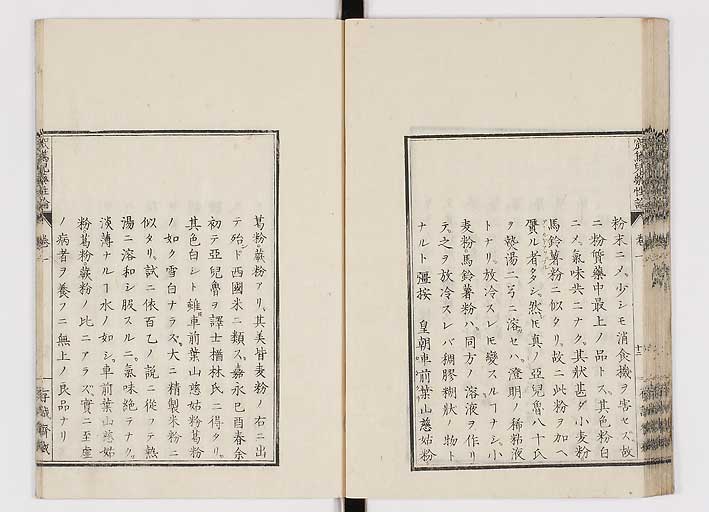 粉末ニメ、少シモ消食機ヲ害セズ、故
ニ粉質藥中最上ノ品トス、其色粉白
ニメ、氣味共ニナク、其狀甚ダ小麦粉
馬鈴薯粉ニ似タリ、故ニ此粉ヲ加ヘ
贋ル者多シ、然𪜈真ノ亞兒魯八十氏
ヲ熱湯二弓ニ溶セハ、澄明ノ稀粘液
トナリ、放冷ス𪜈變スルヿナシ、小
麦粉馬鈴薯粉ハ、同方ノ溶液ヲ作リ
テ、之ヲ放冷スレバ糊膠糊狀ノ物ト
ナルト 彊按 皇朝車前葉山慈姑粉
葛粉蕨粉アリ、其美皆麦粉ノ右ニ出
テ殆ンド西國米ニ類ス、嘉永己酉春余
初テ亞兒魯ヲ譯士楢林氏ニ得タリ、
其色白シト雖、車前葉山慈姑粉葛粉
ノ如ク雪白ナラズ、大ニ精製米粉ニ
似タリ、試ニ依百乙ノ説ニ從フテ熱
湯ニ溶和シ服スルニ、氣味絶テナク、
淡薄ナルヿ水ノ如シ、車前葉山慈姑
粉葛粉蕨粉ノ比ニアラズ、實ニ至虚
ノ病者ヲ養フニ無上ノ良品ナリ